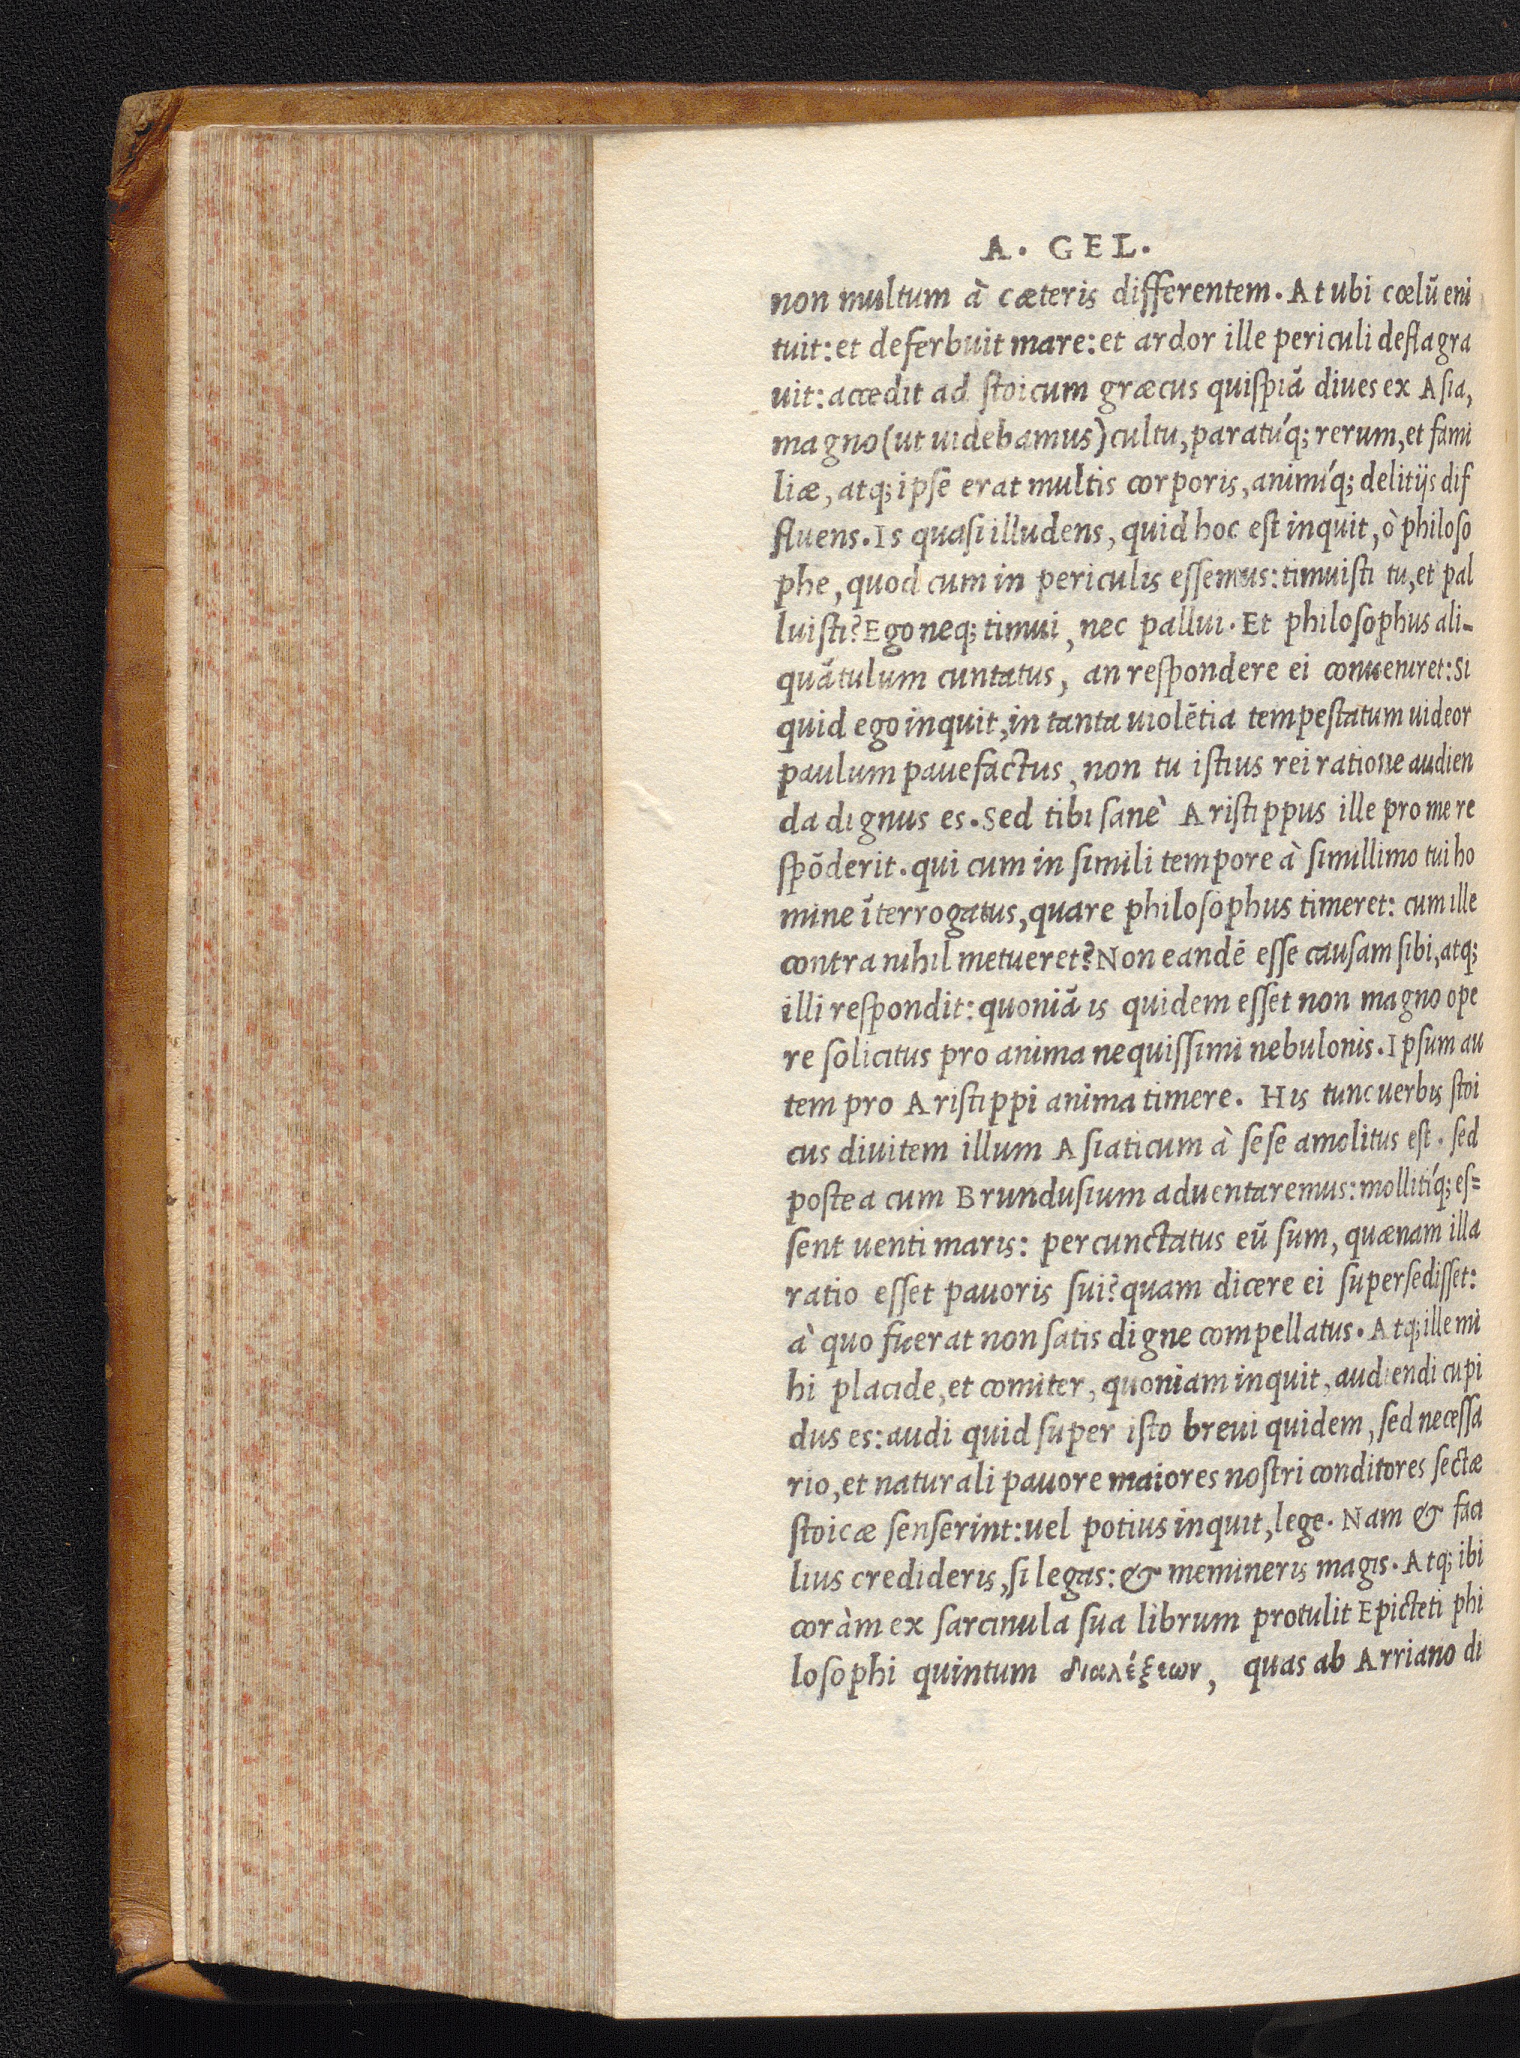 A. GEL.
non multum à cæteris differentem. At ubi cœlũ eni
tuit: et deferbuit mare: et ardor ille periculi deflagra
uit: accedit ad ſtoicum græcus quiſpiã diues ex Aſia,
magno (ut uidebamus) cultu, paratúq; rerum, et fami
liæ, atq; ipſe erat multis corporis, animíq; delitijs dif
fluens. Is quaſi illudens, quid hoc eſt inquit, ò philoſo
phe, quod cum in periculis eſſemus: timuiſti tu, et pal
luiſti? Ego neq; timui, nec pallui. Et philoſophus ali-
quãtulum cuntatus, an reſpondere ei conueniret: Si
quid ego inquit, in tanta uiolẽtia tempeſtatum uideor
paulum pauefactus, non tu iſtius rei ratione audien
da dignus es. Sed tibi ſanè Ariſtippus ille pro me re
ſpõderit. qui cum in ſimili tempore à ſimillimo tui ho
mine ĩterrogatus, quare philoſophus timeret: cum ille
contra nihil metueret? Non eandẽ eſſe cauſam ſibi, atq;
illi reſpondit: quoniã is quidem eſſet non magno ope
re ſolicitus pro anima nequiſſimi nebulonis. Ipſum au
tem pro Ariſtippi anima timere. His tunc uerbis ſtoi
cus diuitem illum Aſiaticum à ſeſe amolitus eſt. ſed
poſtea cum Brunduſium aduentaremus: mollitíq; eſ=
ſent uenti maris: percunctatus eũ ſum, quænam illa
ratio eſſet pauoris ſui? quam dicere ei ſuperſediſſet:
à quo fuerat non ſatis digne compellatus. Atq; ille mi
hi placide, et comiter, quoniam inquit, audiendi cupi
dus es: audi quid ſuper iſto breui quidem, ſed neceſſa
rio, et naturali pauore maiores noſtri conditores ſectæ
ſtoicæ ſenſerint: uel potius inquit, lege. Nam & faci
lius credideris, ſi legas: & memineris magis. Atq; ibi
coràm ex ſarcinula ſua librum protulit Epicteti phi
loſophi quintum διαλέξεων, quas ab Arriano di